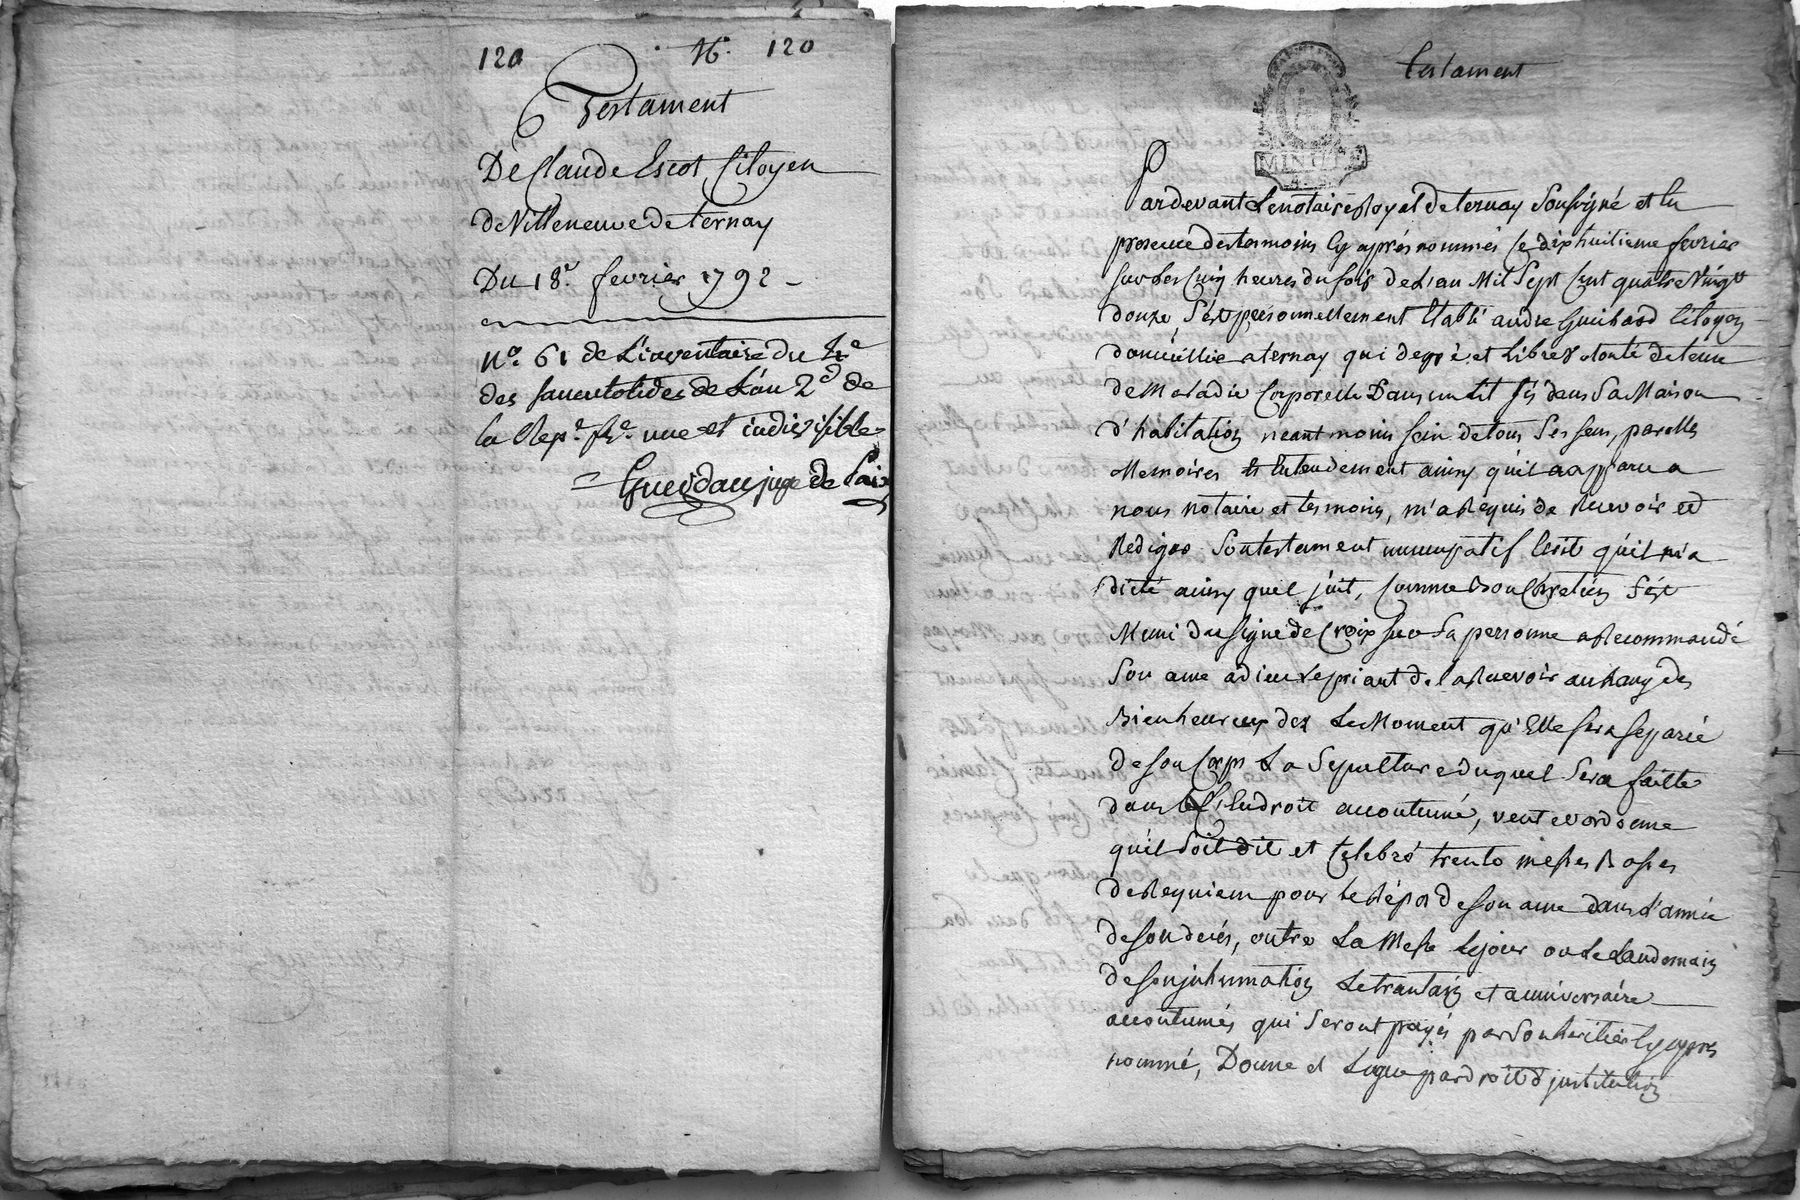 120 N°. 120
Testament
De Claude Escot Citoyen
de Villeneuve de ternay
Du 18e. fevrier 1792 -
N°. 61 de L'inventaire du 4e
des sanculotides de L'an 2d de
la Rep.e fse. une et indivisible
= Guerdan juge de Paix
testament
MINUTE
Pardevant Le notaire Royal de ternay Soussigné et En
presence des temoins Cy après nommés Ce dix huitieme fevrier
sur les Cinq heures du soir de L'an Mil Sept Cent quatre Vingt
douze, S'est personnellement Etabli andre Guichard Citoyen
domicillié a ternay qui de gré et Libre volonté detenu
de Maladie Corporelle Dans un Lit sis dans Sa Maison
d'habitation neantmoins sain de tous Ses sens, parolle
Memoires Et Entendement ainsy qu'il a apparu a
nous notaire et temoins, m'a Requis de Recevoir et
Rediger Son testament nuncupatif Ecrit qu'il m'a
dicté ainsy quel suit, Comme Bon Chretien S'est
Muni du signe de Croix sur Sa personne a Recommandé
Son ame a dieu Le priant de la Recevoir au Rang des
Bienheureux dez Le Moment qu'Elle sera separée
de son Corps La Sepulture duquel Sera faitte
dans L'Endroit accoutumé, veut et ordonne
qu'il Soit dit et Celebré trente messes Basses
de Requiem pour le Répos de son ame dans L'année
de son decés, outre La Messe Le jour ou Le Landemain
de son inhumation Le trantain et anniversaire
accoutumés qui Seront payés par Son heritier Cy apres
nommé, Donne et Legue par droit d'institution